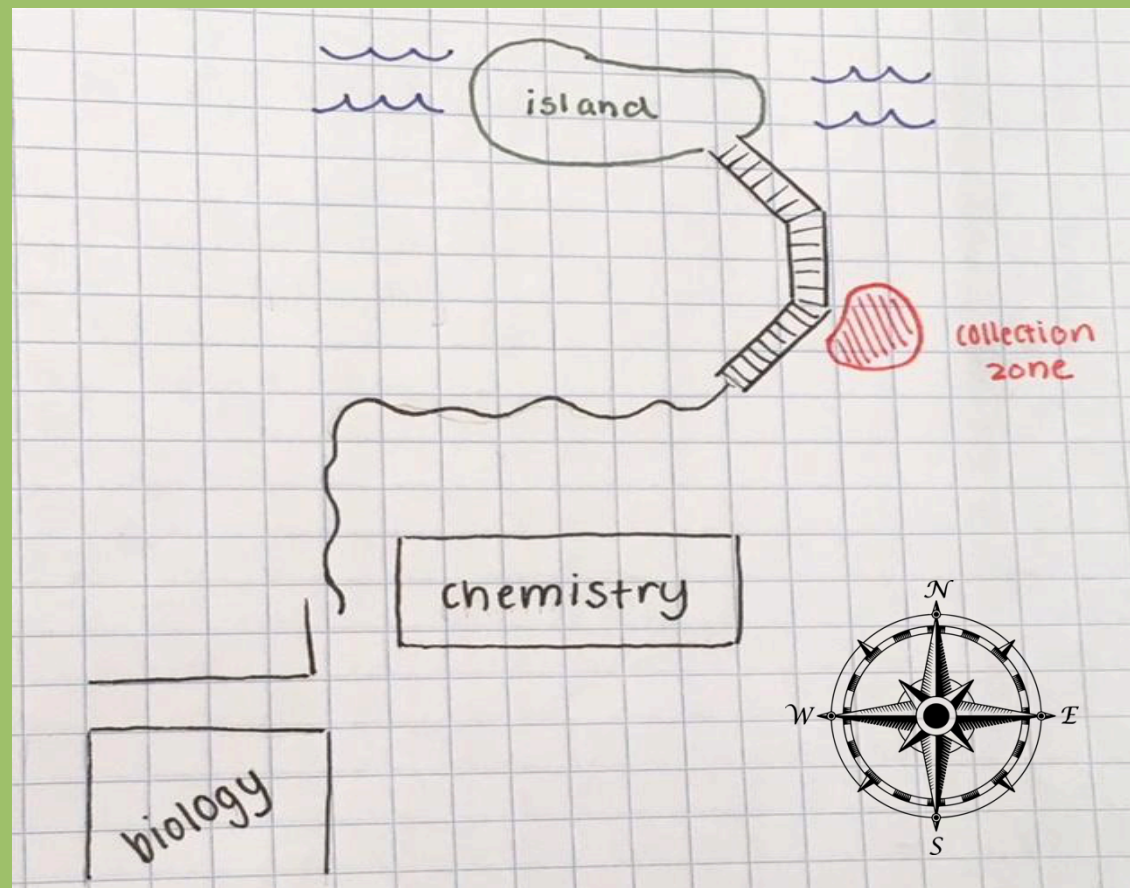 island
collection
zone
chemistry
N
W
E
S
biology